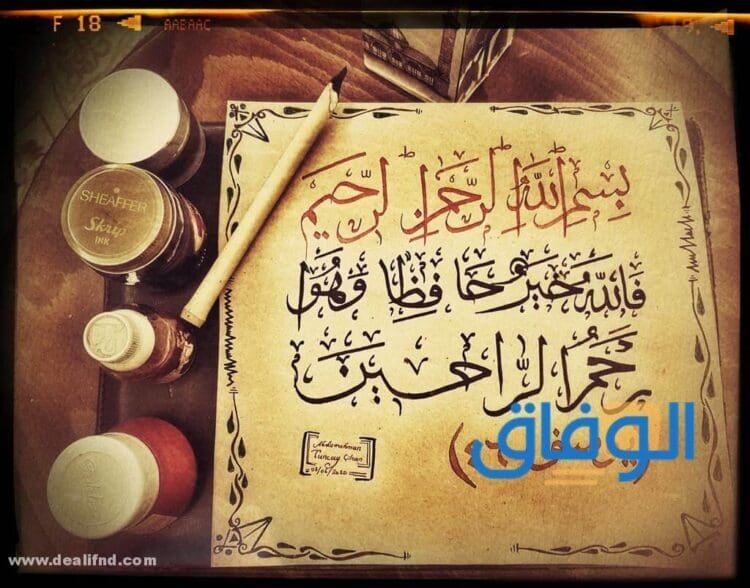 F 18
AAEAAC
SHEAFFER
Skrip
INK
بسم الله الرحمن الرحيم
فالله خير حافظا وهو
أرحم الراحمين
الوفاق
Tuncay Cihan
www.dealifnd.com